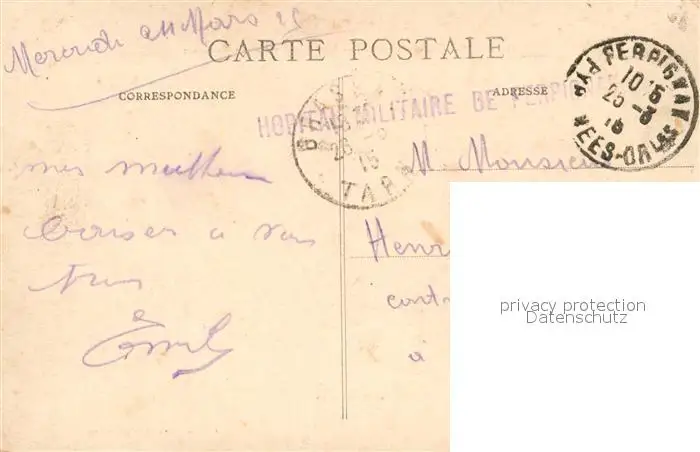 Mercredi 24 Mars 15
CARTE POSTALE
CORRESPONDANCE
ADRESSE
HOPITAL MILITAIRE DE PERPIGNAN
PERPIGNAN
10 15
25 -3
15
PYRÉES-ORLES
15
TARN
mes meilleurs
baisers à vous
tous
Emile
M. Monsieur
Henri
à
privacy protection
Datenschutz